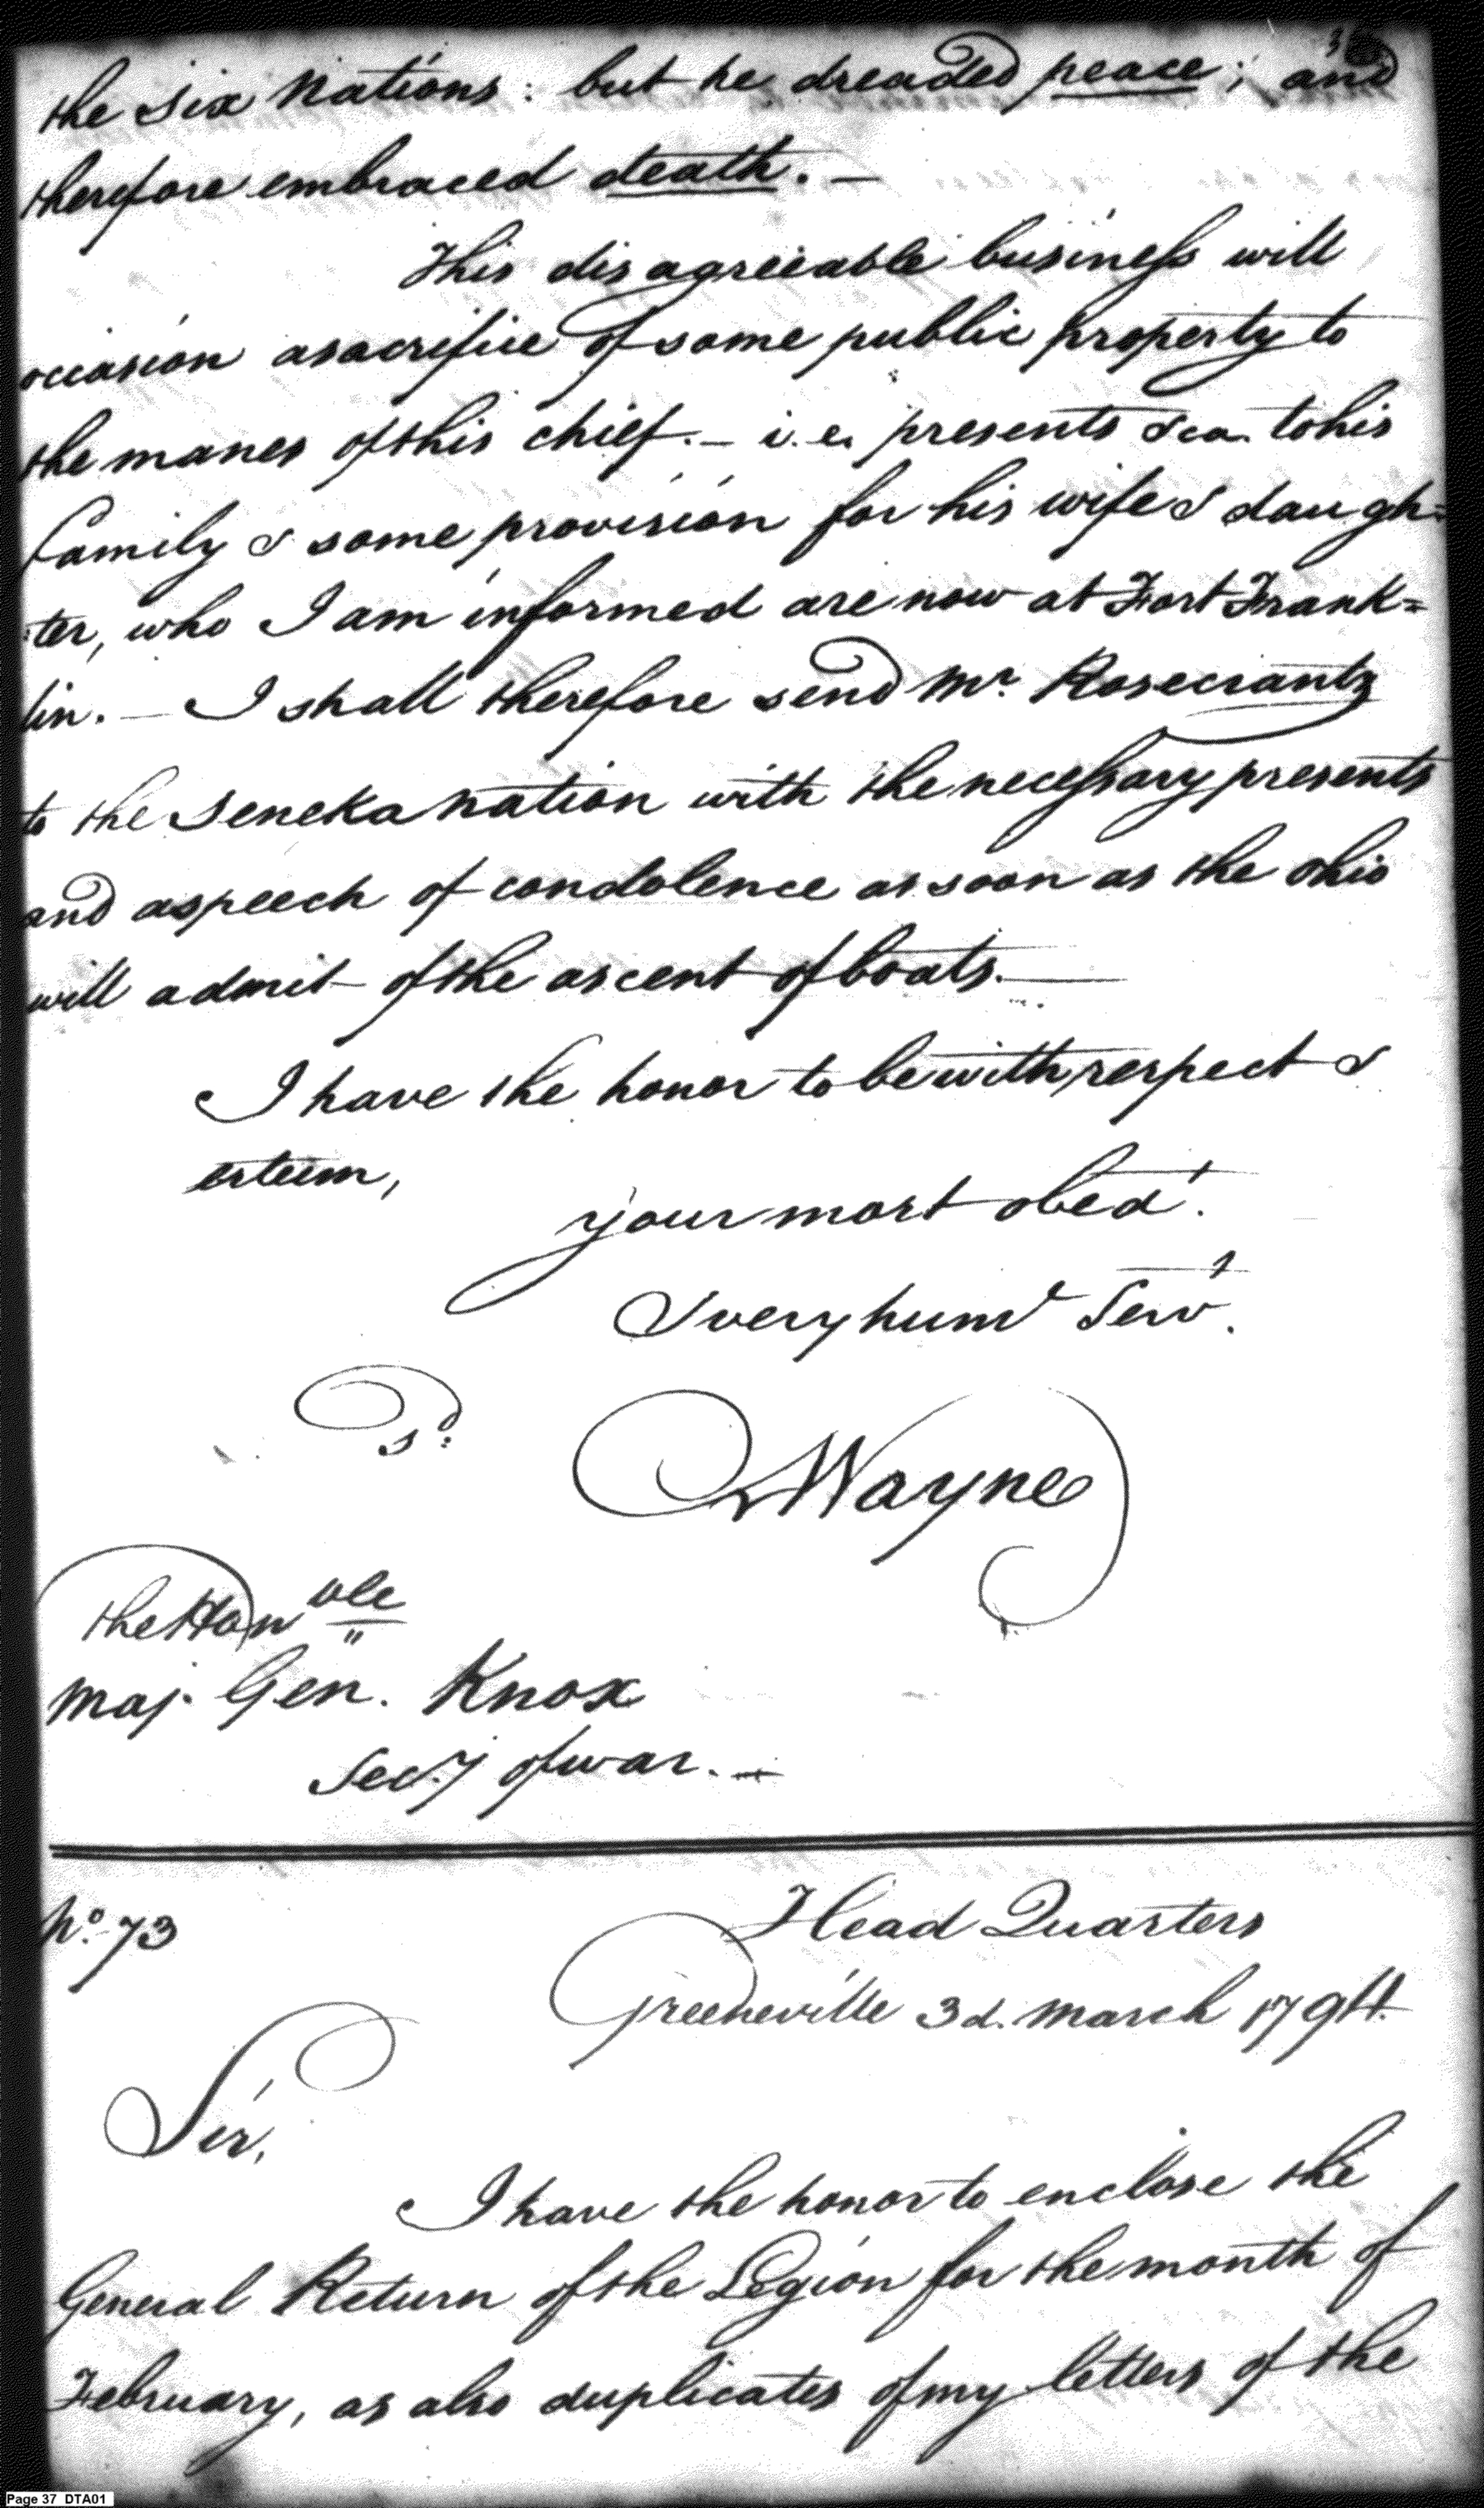 the Six Nations: but he dreaded peace; and
therefore embraced death. —
This disagreeable business will
occasion a sacrifice of some public property to
the manes of this chief. — i.e. presents &ca. to his
family & some provision for his wife & daugh=
ter, who I am informed are now at Fort Frank=
lin. — I shall therefore send Mr. Rosecrantz
to the Seneka nation with the necessary presents
and a speech of condolence as soon as the Ohio
will admit of the ascent of boats. —
I have the honor to be with respect &
esteem,
your most obedt.
& very humle Servt.
Sd:
Wayne
The Honble
Maj. Gen. Knox
Secy of war. —
No. 73
Head Quarters
Greeneville 3d. March 1794.
Sir,
I have the honor to enclose the
General Return of the Legion for the month of
February, as also duplicates of my letters of the
Page 37 DTA01